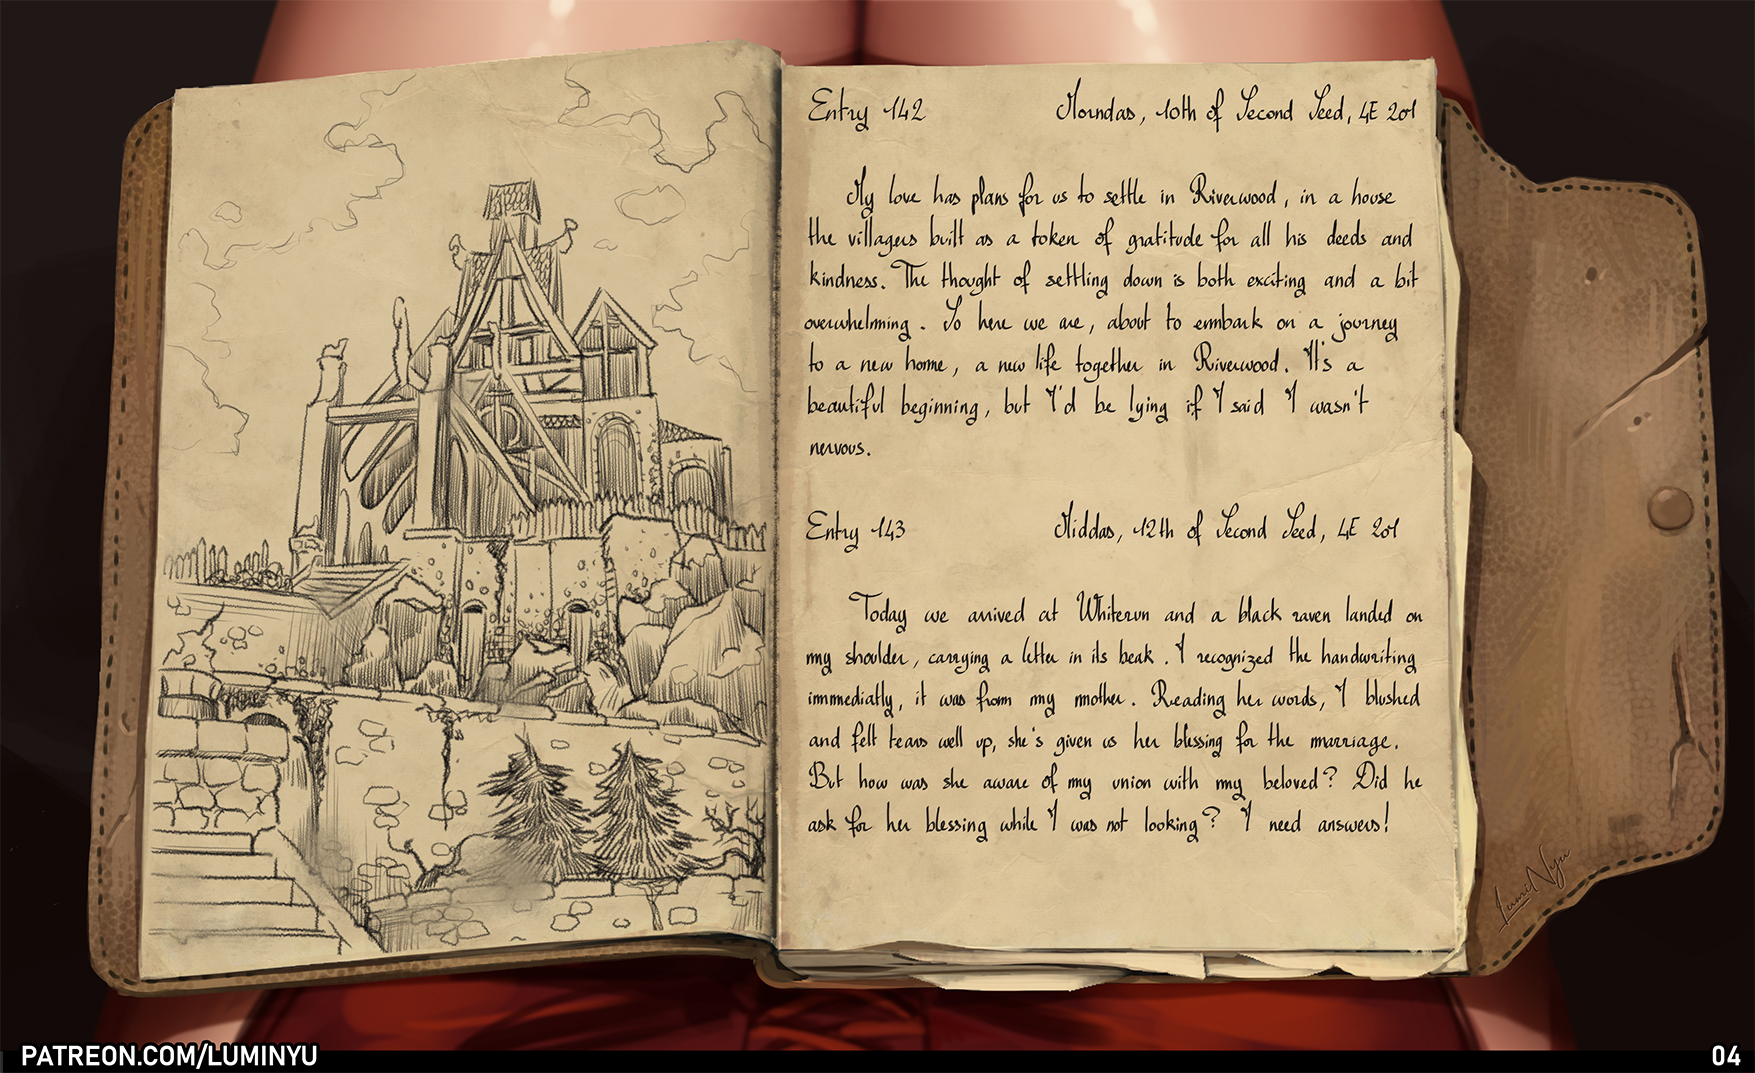 Entry 142 Morndas, 10th of Second Seed, 4E 201
My love has plans for us to settle in Riverwood, in a house
the villagers built as a token of gratitude for all his deeds and
kindness. The thought of settling down is both exciting and a bit
overwhelming. So here we are, about to embark on a journey
to a new home, a new life together in Riverwood. It's a
beautiful beginning, but I'd be lying if I said I wasn't
nervous.
Entry 143 Middas, 12th of Second Seed, 4E 201
Today we arrived at Whiterun and a black raven landed on
my shoulder, carrying a letter in its beak. I recognized the handwriting
immediatly, it was from my mother. Reading her words, I blushed
and felt tears well up, she's given us her blessing for the marriage.
But how was she aware of my union with my beloved? Did he
ask for her blessing while I was not looking? I need answers!
LumiNyu
PATREON.COM/LUMINYU
04